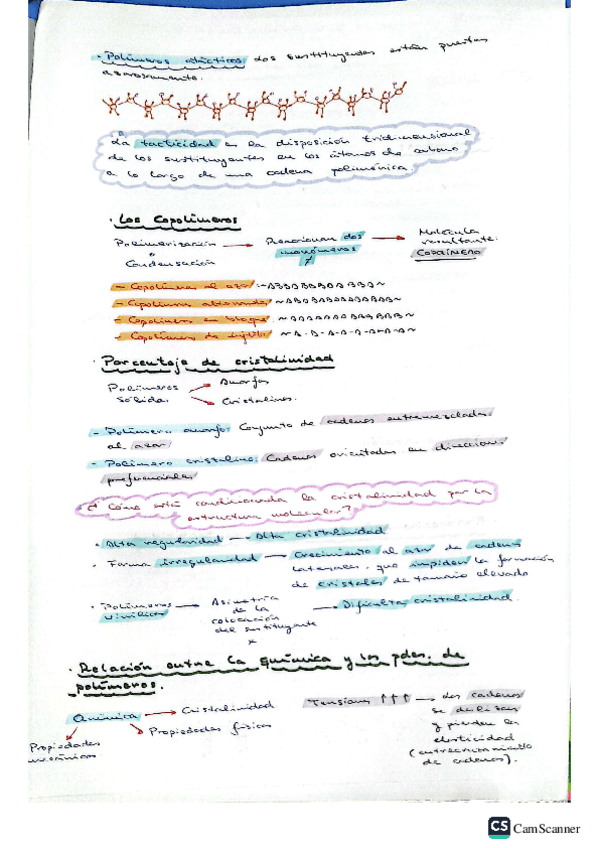 · Polímeros atácticos: los sustituyentes están puestos
La tacticidad es la disposición tridimensional
de los sustituyentes en los átomos de carbono
a lo largo de una cadena polimérica.
· Los Copolímeros
Polimerización → Reaccionan dos → Molécula
o monómeros resultante:
Condensación COPOLÍMERO
- Copolímeros al azar:
- Copolímeros alternados
- Copolímeros en bloque:
- Copolímeros de injerto:
· Porcentaje de cristalinidad
Polímeros → Amorfos
sólidos → Cristalinos.
- Polímero amorfo: Conjunto de cadenas entremezcladas
al azar
- Polímero cristalino: Cadenas orientadas en direcciones
preferenciales
¿Cómo está condicionada la cristalinidad por la
estructura molecular?
· Alta regularidad → Alta cristalinidad
· Forma irregularidad → Crecimiento al azar de cadenas
laterales, que impiden la formación
de cristales de tamaño elevado
· Polímeros → Asimetría → Dificultas cristalinidad.
vinílicos de la
colocación
del sustituyente
· Relación entre la química y las pdes. de
polímeros.
Química → Cristalinidad
→ Propiedades físicas
Propiedades
mecánicas
Tensiones ↑↑↑ → las cadenas
se deslizan
y pierden la
elasticidad
(entrecruzamiento
de cadenas).
CS CamScanner